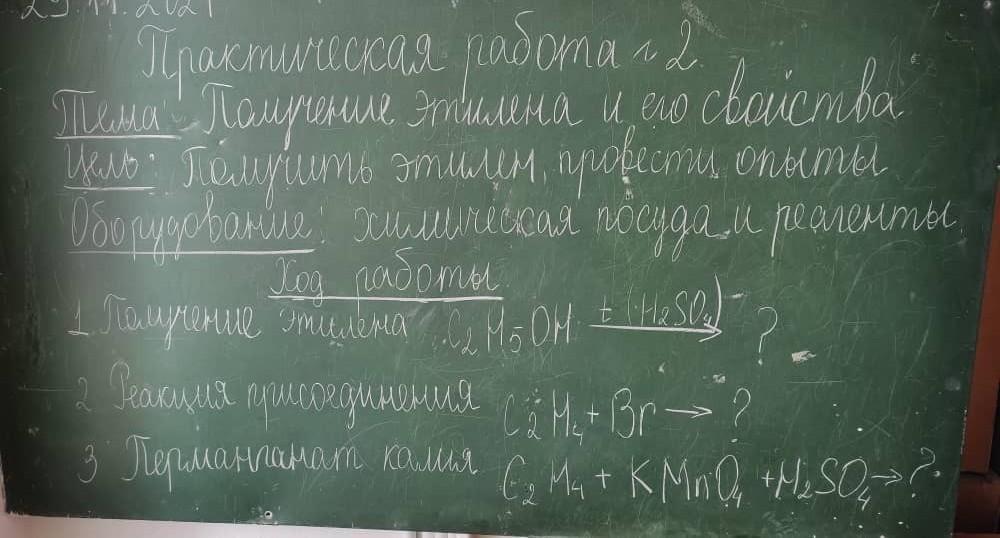 Практическая работа №2.
Тема: Получение этилена и его свойства.
Цель: Получить этилен, провести опыты.
Оборудование: химическая посуда и реагенты.
Ход работы.
1. Получение этилена C2H5OH t (H2SO4) → ?
2 Реакция присоединения C2H4 + Br → ?
3 Перманганат калия C2H4 + KMnO4 + H2SO4 → ?